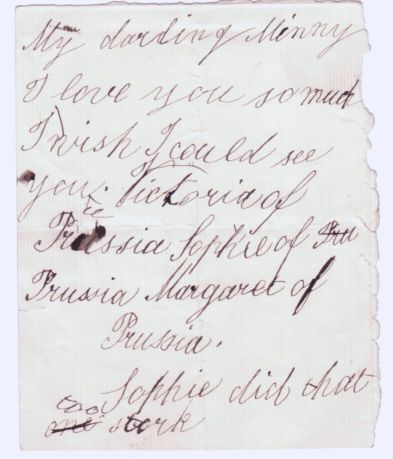 My darling Minny
I love you so much
I wish I could see
you. Victoria of
Prussia Sophie of Pru
Prussia Margaret of
Prussia.
Sophie did that